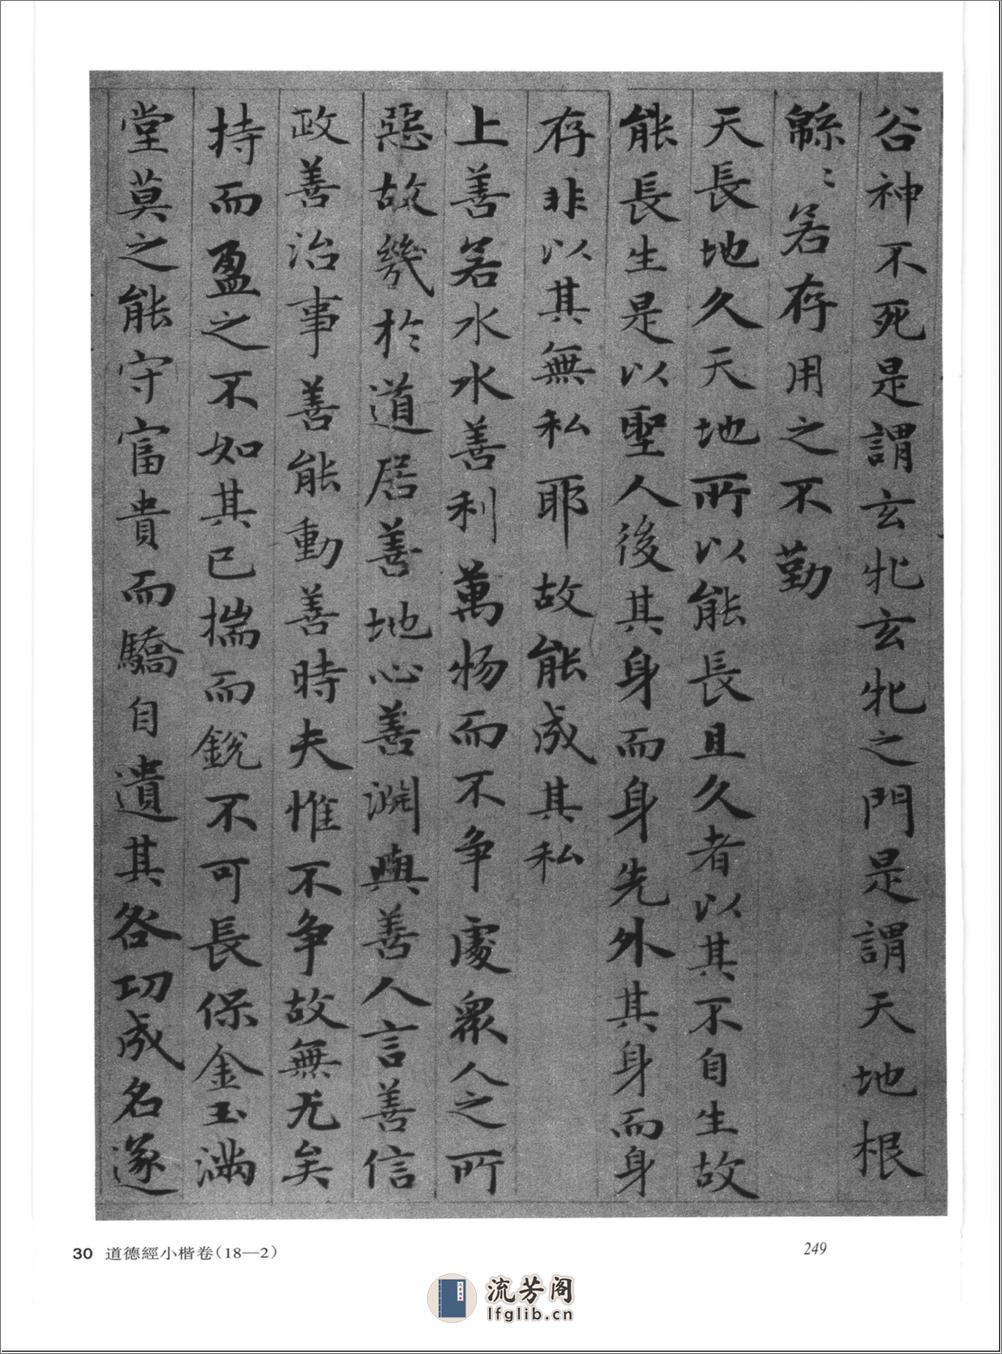 谷神不死是謂玄牝玄牝之門是謂天地根
緜〻若存用之不勤
天長地久天地所以能長且久者以其不自生故
能長生是以聖人後其身而身先外其身而身
存非以其無私耶故能成其私
上善若水水善利萬物而不争處衆人之所
惡故幾於道居善地心善淵與善人言善信
政善治事善能動善時夫惟不争故無尤矣
持而盈之不如其已揣而銳不可長保金玉滿
堂莫之能守富貴而驕自遺其咎功成名遂
30 道德經小楷卷(18—2)
249
流芳阁
lfglib.cn